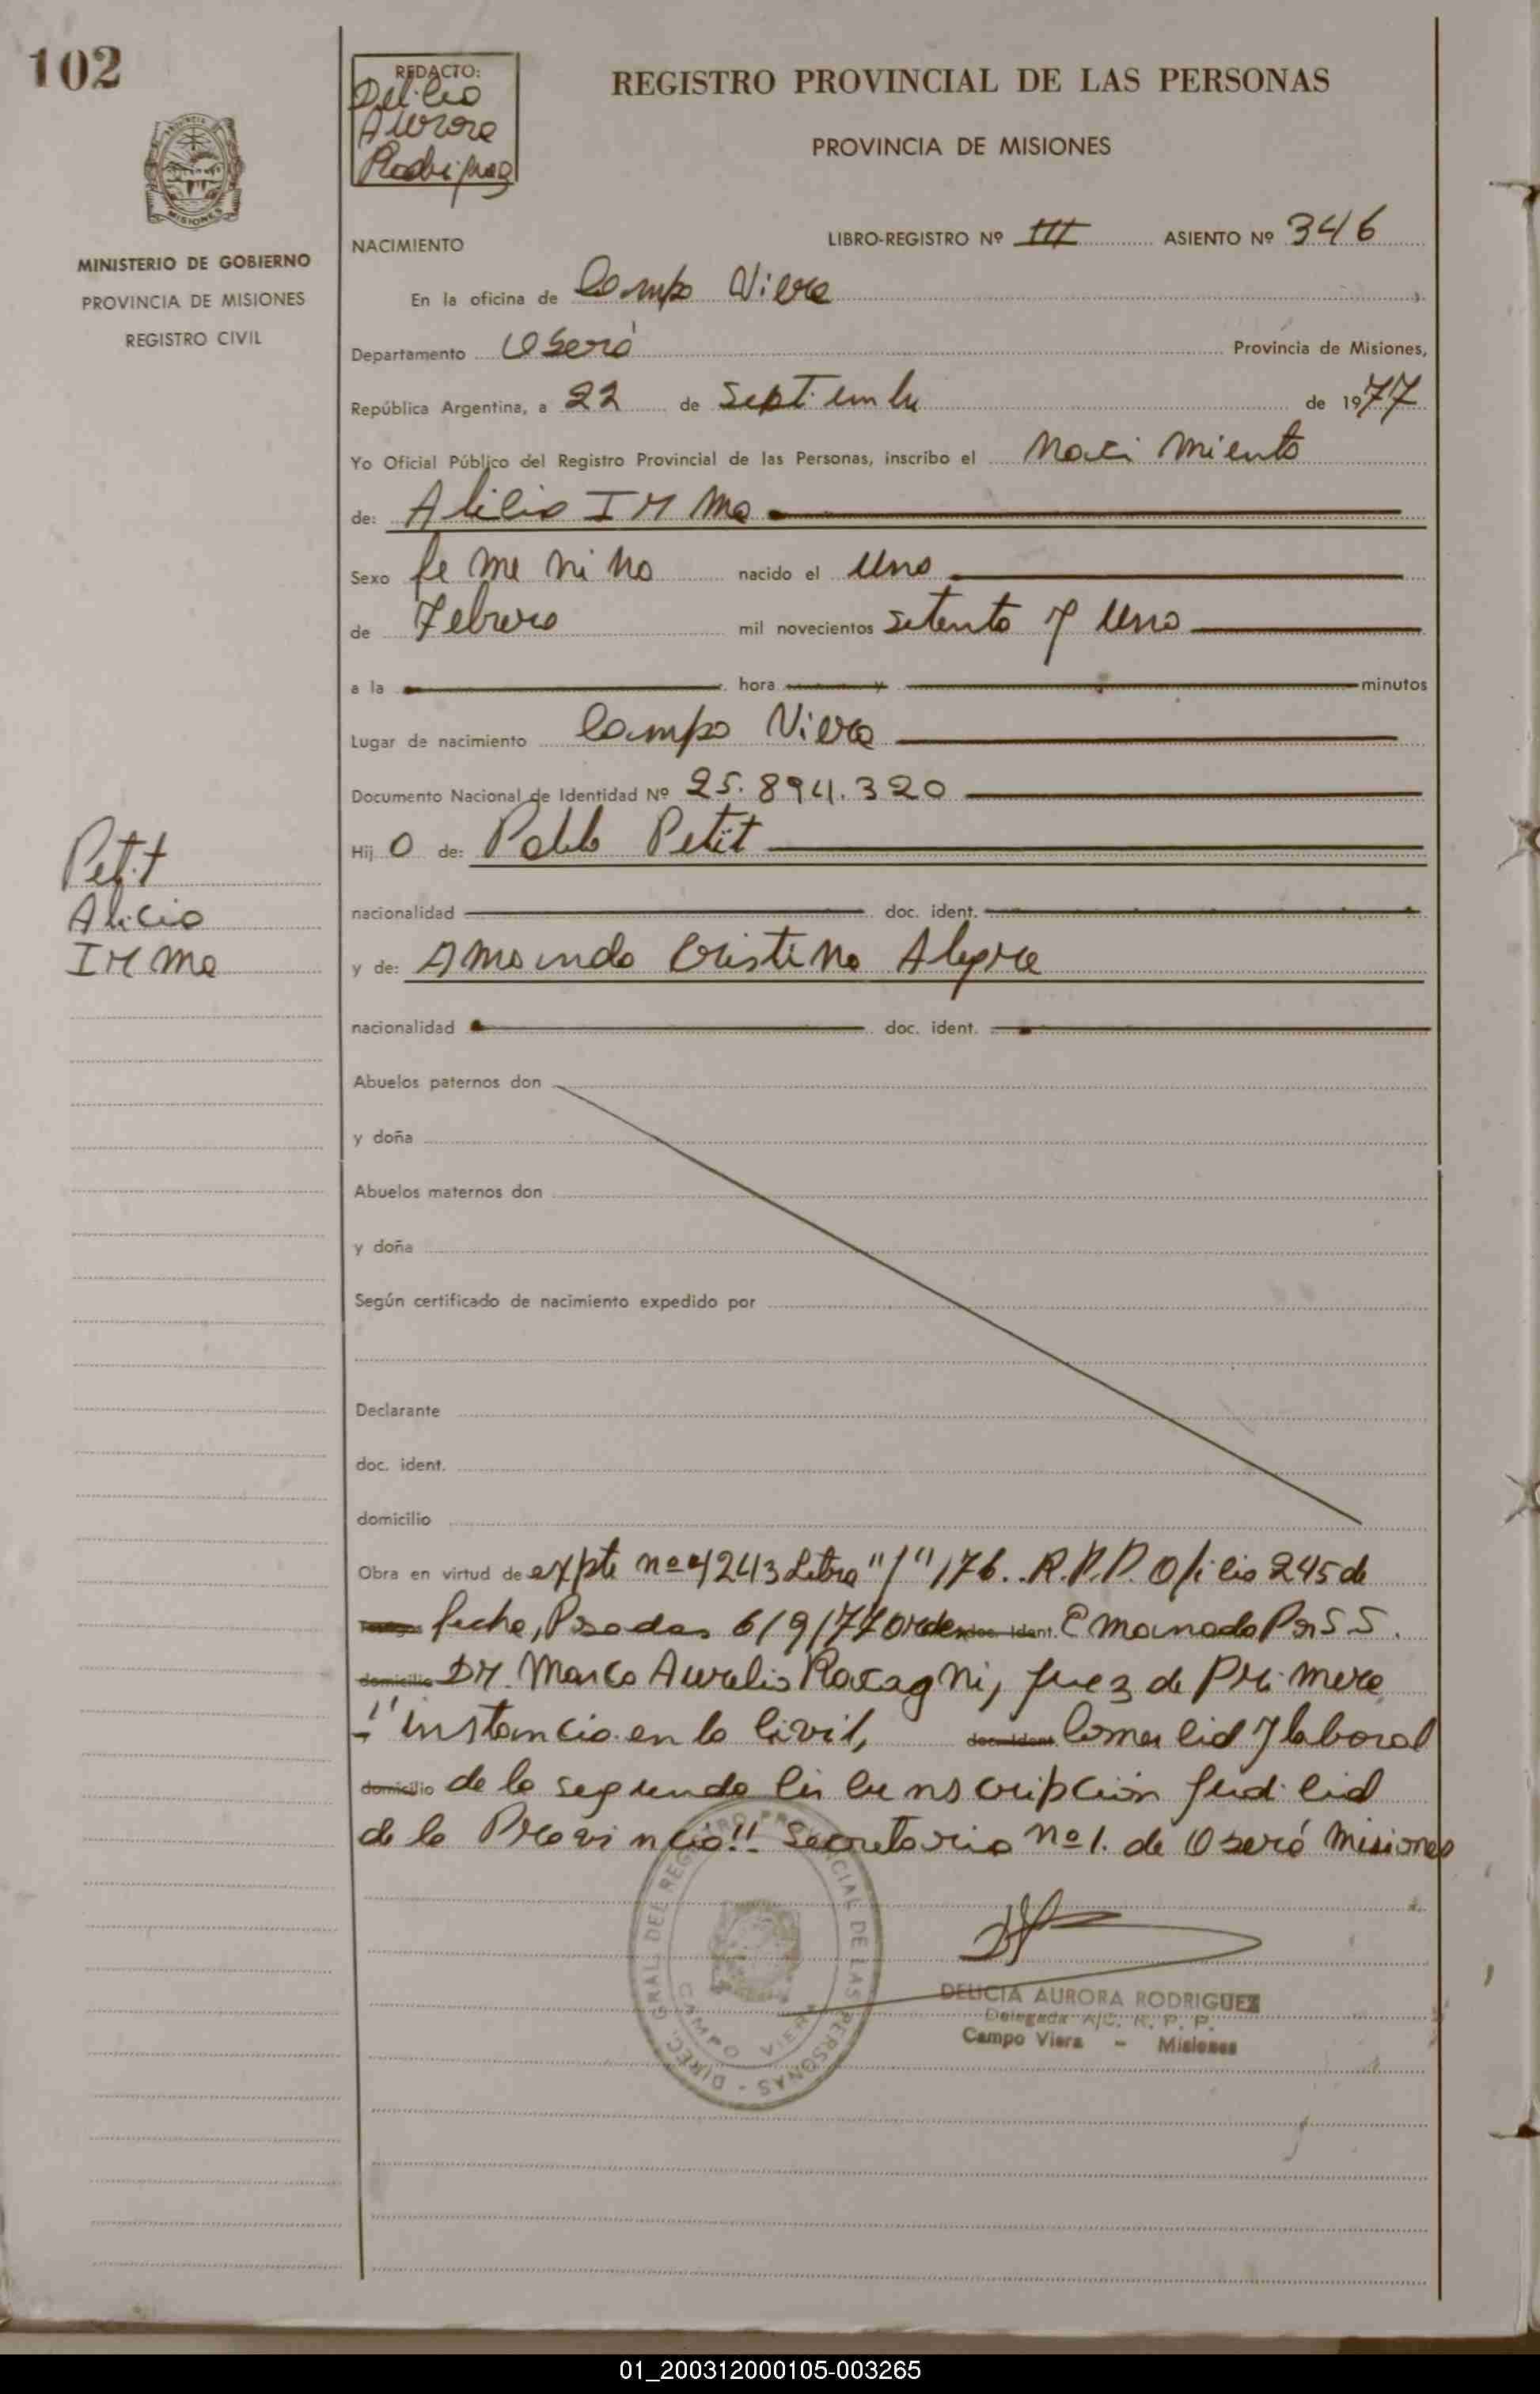 102
REDACTO:
Delicia
Aurora
Rodriguez
REGISTRO PROVINCIAL DE LAS PERSONAS
PROVINCIA DE MISIONES
PROVINCIA
MISIONES
MINISTERIO DE GOBIERNO
PROVINCIA DE MISIONES
REGISTRO CIVIL
NACIMIENTO
LIBRO-REGISTRO Nº III ASIENTO Nº 346
En la oficina de Campo Viera
Departamento Oberá Provincia de Misiones,
República Argentina, a 22 de Septiembre de 1977
Yo Oficial Público del Registro Provincial de las Personas, inscribo el Nacimiento
de: Alicia Irma
Sexo femenino nacido el Uno
de Febrero mil novecientos setenta y Uno
a la hora y minutos
Lugar de nacimiento Campo Viera
Documento Nacional de Identidad Nº 25.894.320
Hij o de: Pablo Petit
nacionalidad doc. ident.
y de: Amanda Cristina Alegre
nacionalidad doc. ident.
Petit
Alicia
Irma
Abuelos paternos don
y doña
Abuelos maternos don
y doña
Según certificado de nacimiento expedido por
Declarante
doc. ident.
domicilio
Obra en virtud de expte nº 4243 Letra "/76. R.P.P. Oficio 245 de
fecha, Posadas 6/9/77 orden doc. ident. Emanada Por S S.
domicilio Dr. Marco Aurelio Racagni, Juez de Primera
instancia en lo Civil, doc. ident. Comercial y laboral
domicilio de la segunda Circunscripción Judicial
de la Provincia!! Secretaria nº 1. de Oberá Misiones
DIREC. GRAL. DEL REGISTRO PROVINCIAL DE LAS PERSONAS
CAMPO VIERA
DELICIA AURORA RODRIGUEZ
Delegada A/C. R. P. P.
Campo Viera - Misiones
01_200312000105-003265